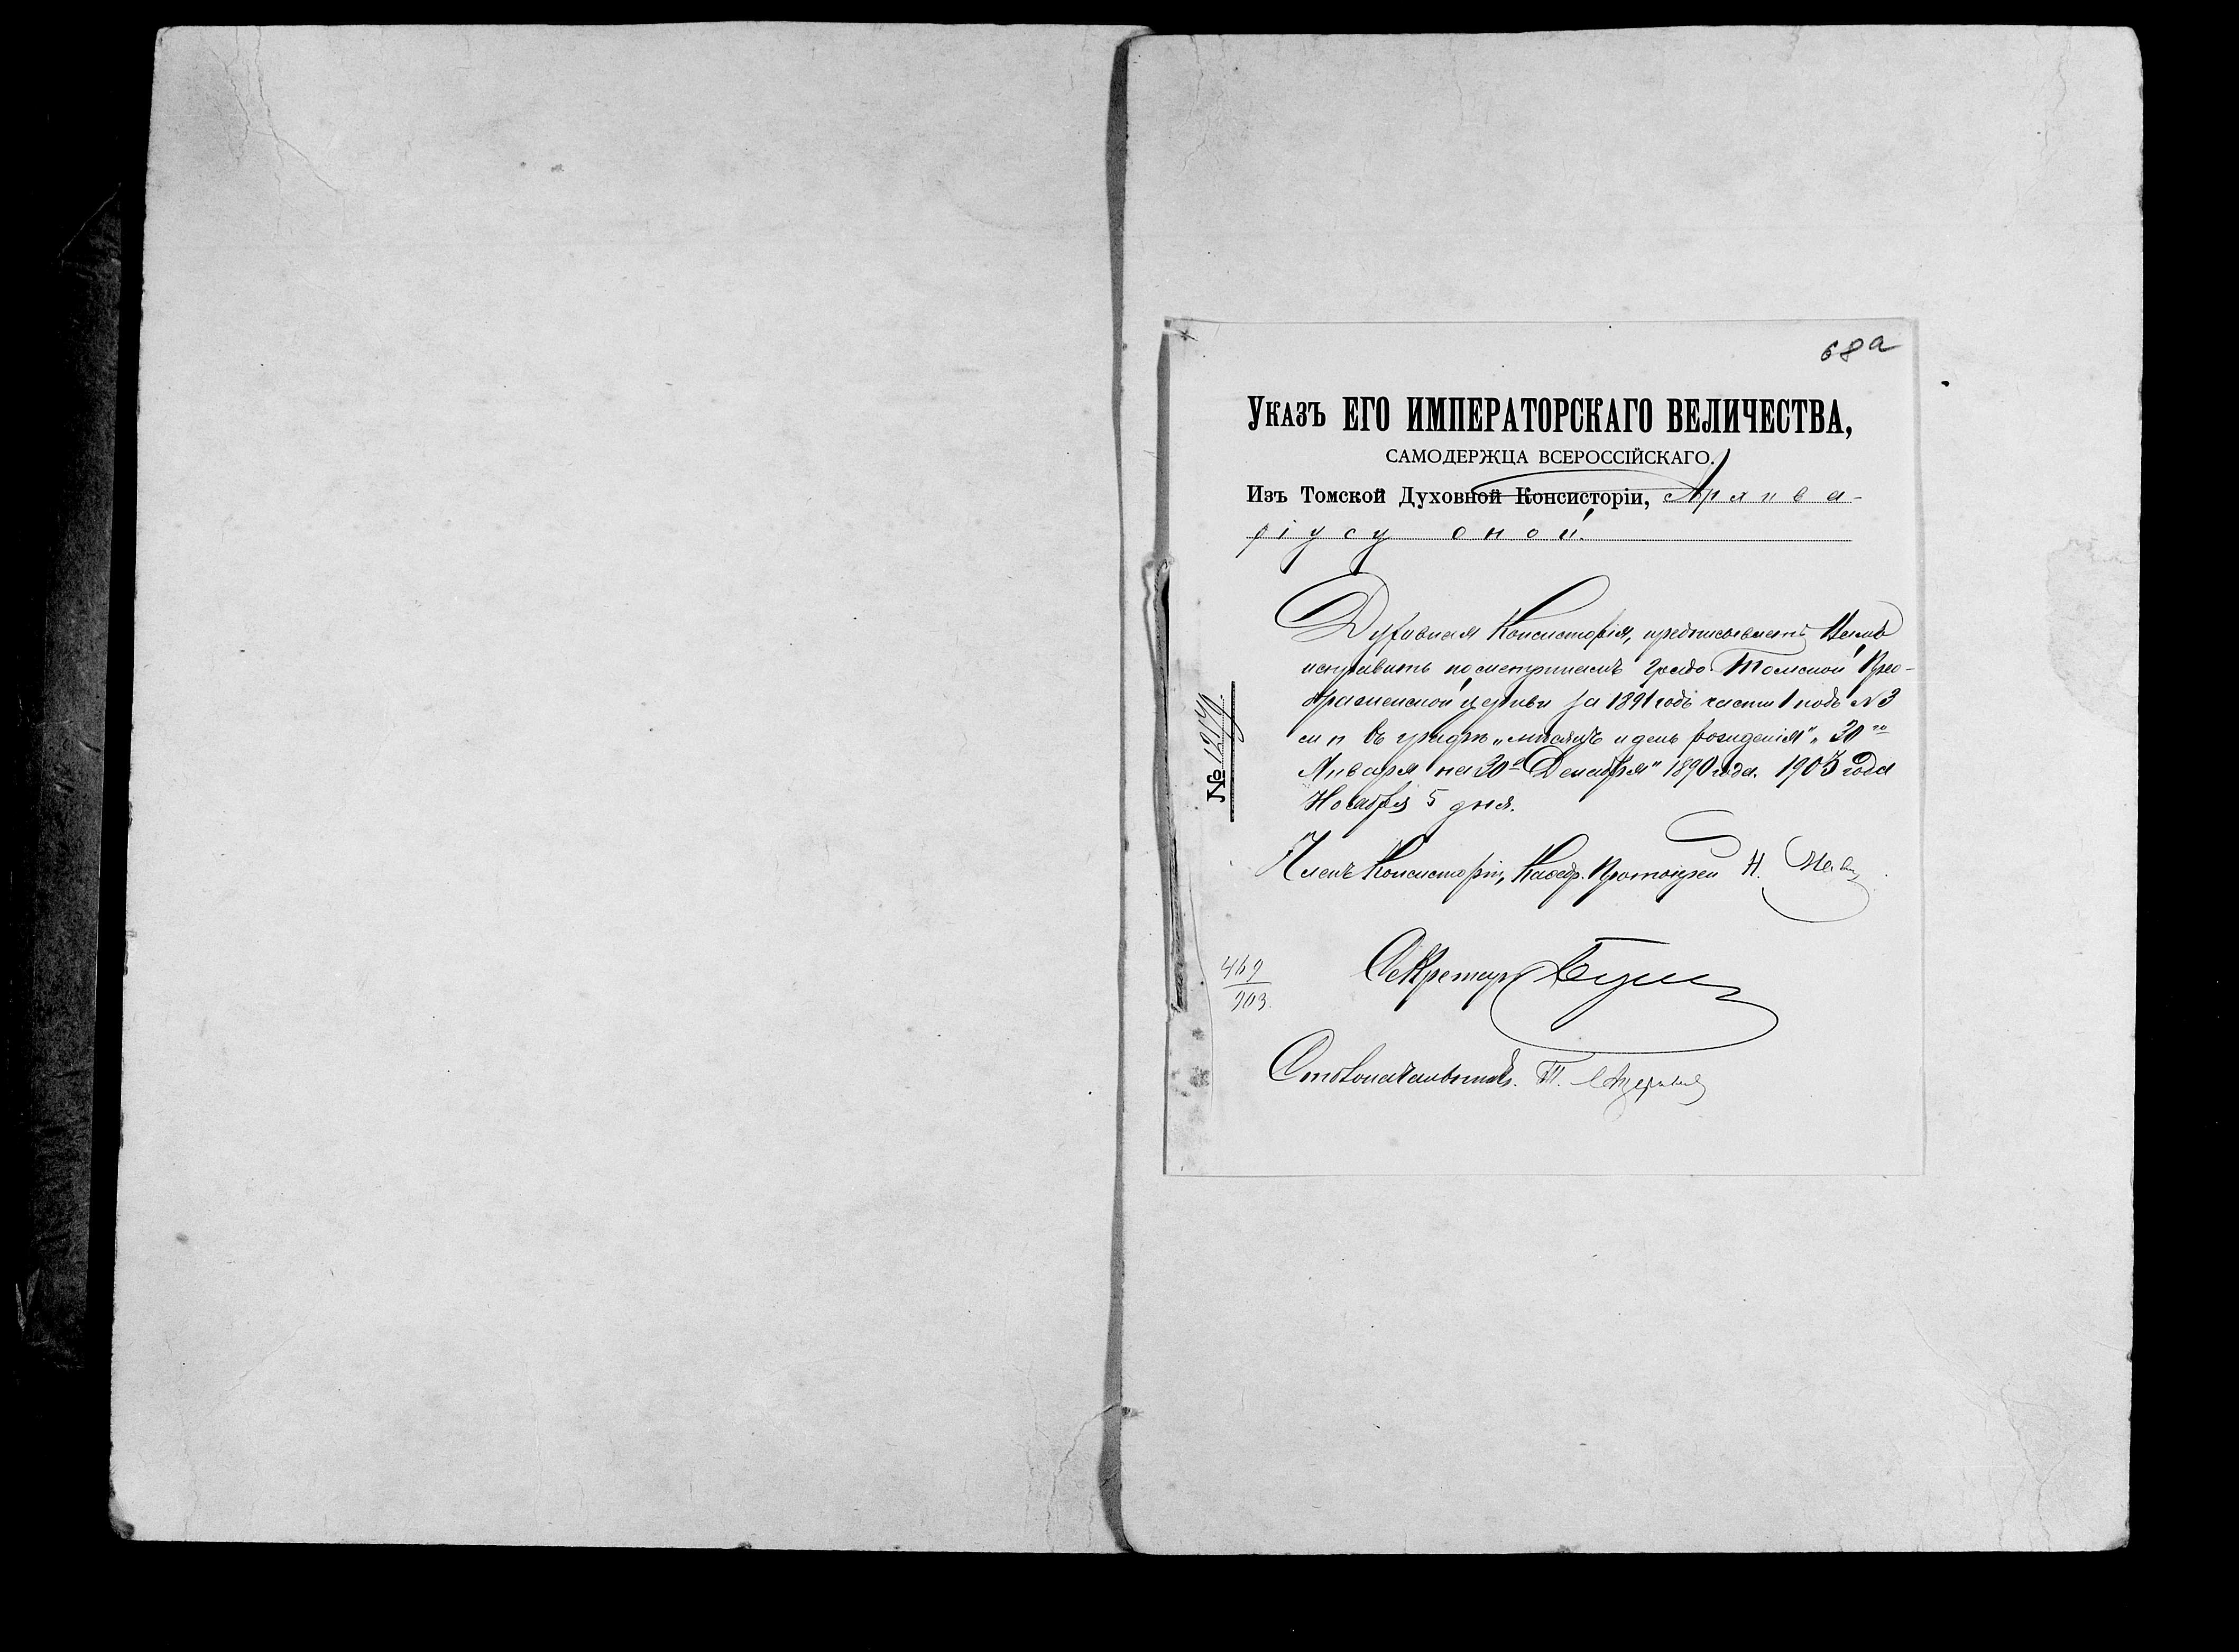 68а
Указъ ЕГО ИМПЕРАТОРСКАГО ВЕЛИЧЕСТВА,
САМОДЕРЖЦА ВСЕРОССІЙСКАГО.
Изъ Томской Духовной Консисторіи, Архива-
ріусу оной.
Духовная Консисторія, предписываетъ Вамъ
исправить по метрикамъ градо Томской Прео-
браженской церкви за 1891 годъ части 1 подъ №3
м п въ графѣ „мѣсяцъ и день рожденія“ „30го
Января на 30е Декабря“ 1890 года. 1903 года
Ноября 5 дня.
№
Членъ Консисторіи, Каѳедр. Протоіерей Н.
469
903.
Секретарь
Столоначальникъ